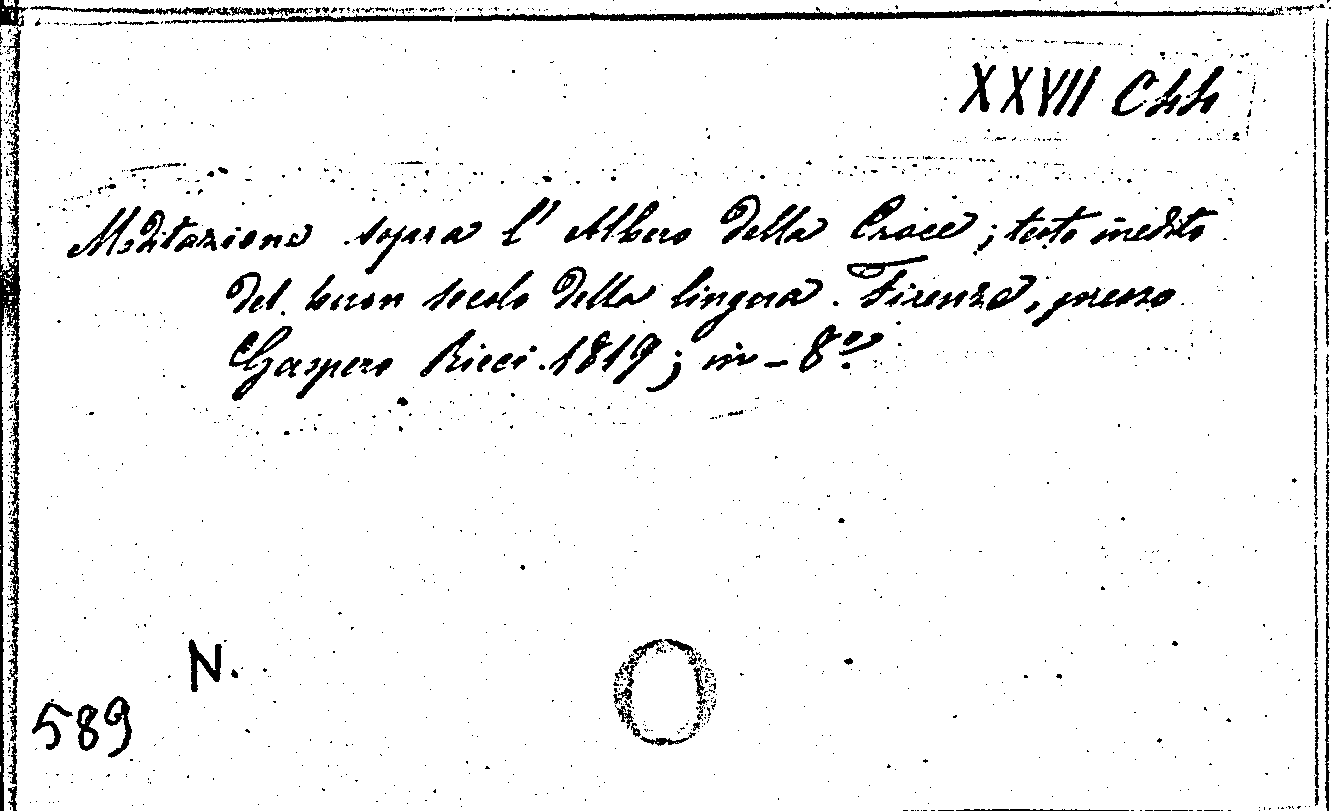 XXVII Chh
Meditazione sopra l' Albero della Croce; testo inedito
del buon secolo della lingua. Firenze, presso
Gaspero Ricci. 1819; in-8º.
N.
589